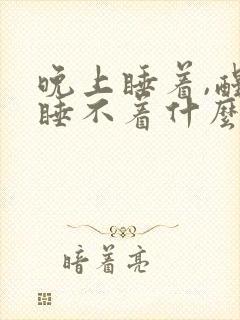 晚上睡着,醒
睡不着什麼
暗着亮